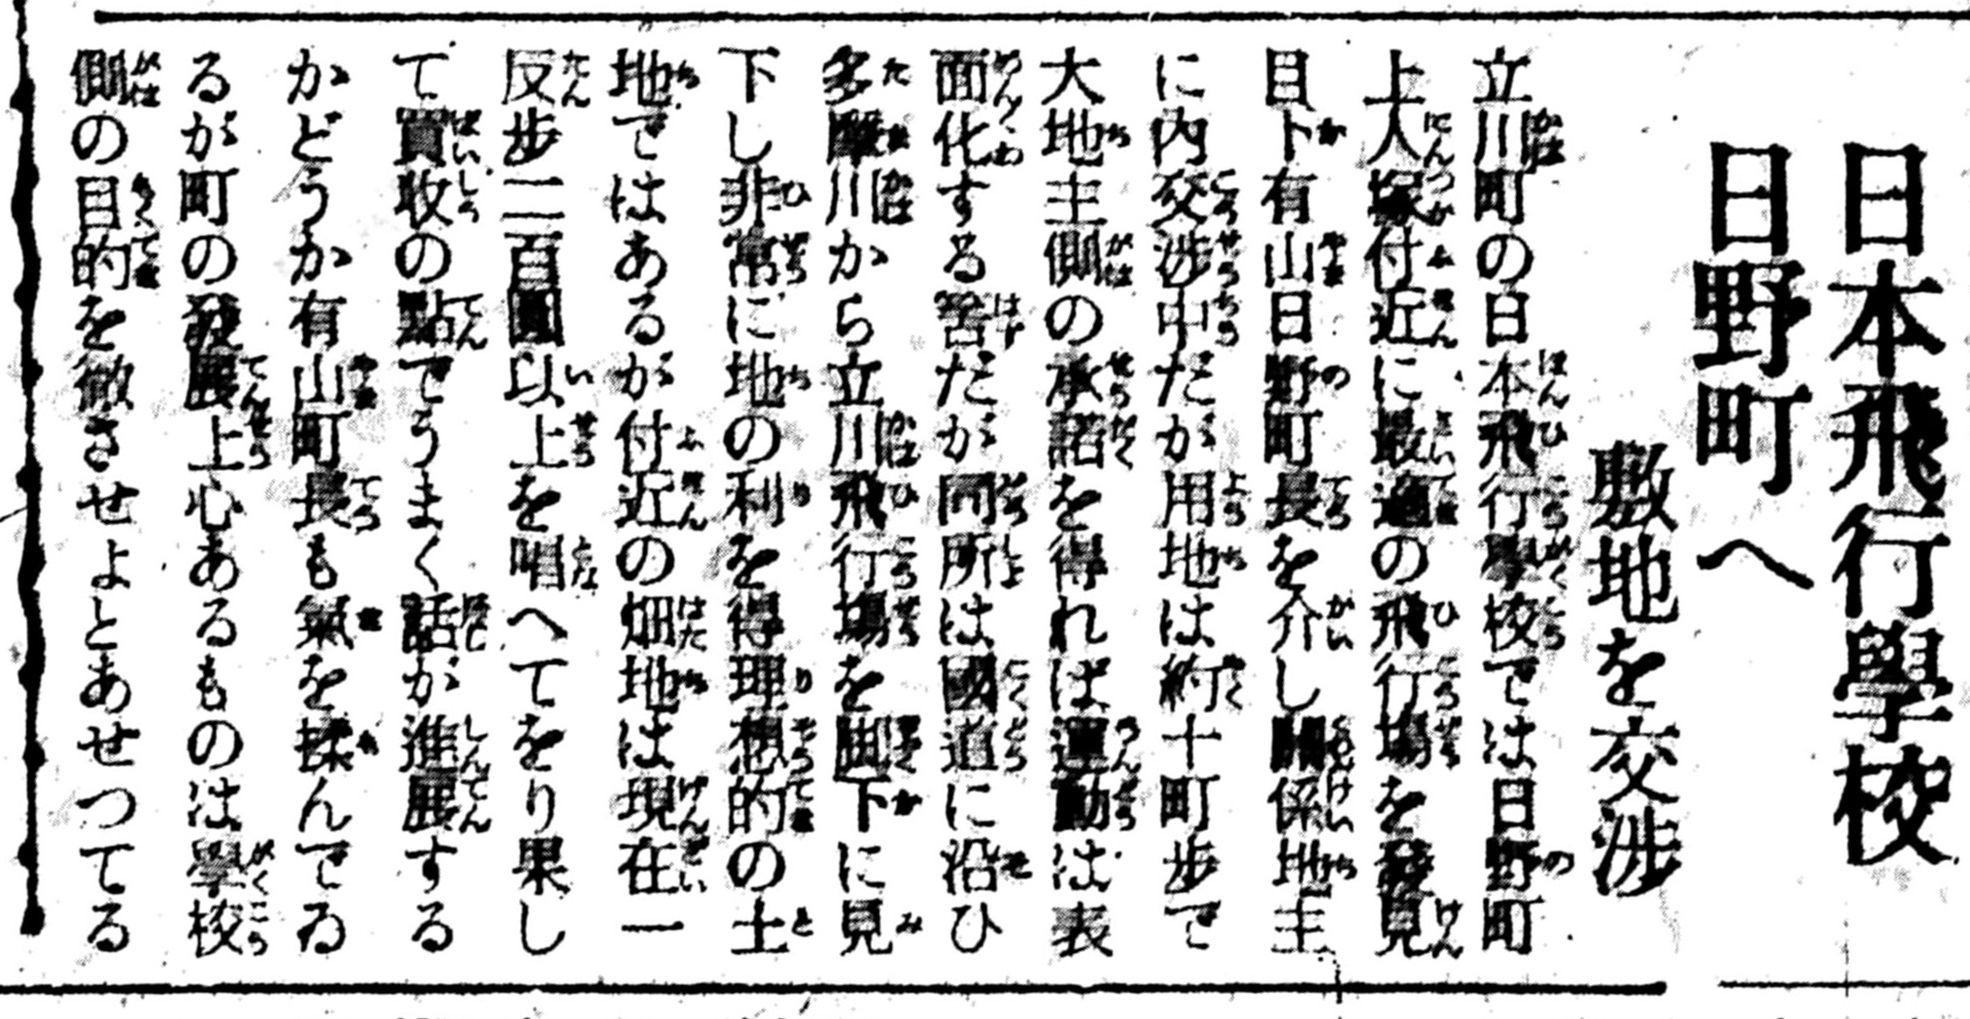 日本飛行學校
日野町へ
敷地を交渉
立川町の日本飛行學校では日野町
上人塚付近に最適の飛行場を發見
目下有山日野町長を介し關係地主
に內交渉中だが用地は約十町步で
大地主側の承諾を得れば運動は表
面化する筈だが同所は國道に沿ひ
多摩川から立川飛行場を脚下に見
下し非常に地の利を得理想的の土
地ではあるが付近の畑地は現在一
反步二百圓以上を唱へてをり果し
て買收の點でうまく話が進展する
かどうか有山町長も氣を揉んでゐ
るが町の發展上心あるものは學校
側の目的を徹させよとあせつてる